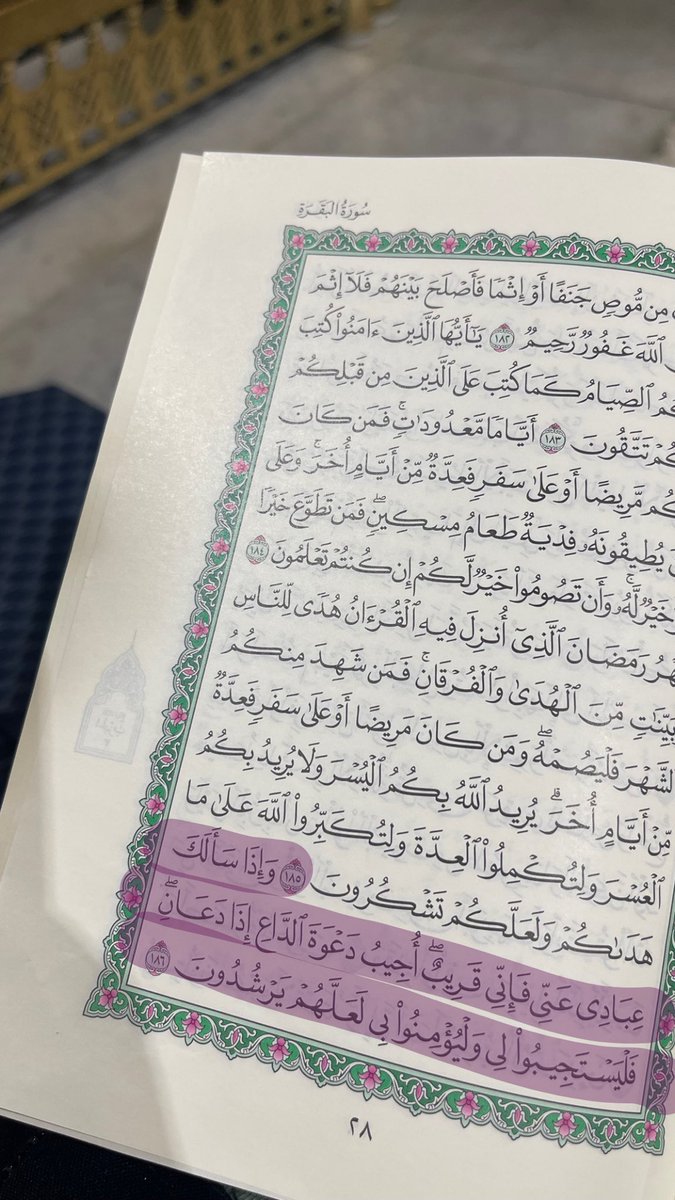 سُورَةُ البَقَرَةِ
مِن مُّوصٍ جَنَفًا أَوْ إِثْمًا فَأَصْلَحَ بَيْنَهُمْ فَلَآ إِثْمَ
ٱللَّهَ غَفُورٌ رَّحِيمٌ ١٨٢ يَٰٓأَيُّهَا ٱلَّذِينَ ءَامَنُوا۟ كُتِبَ
ٱلصِّيَامُ كَمَا كُتِبَ عَلَى ٱلَّذِينَ مِن قَبْلِكُمْ
تَتَّقُونَ ١٨٣ أَيَّامًا مَّعْدُودَٰتٍۚ فَمَن كَانَ
مَّرِيضًا أَوْ عَلَىٰ سَفَرٍ فَعِدَّةٌ مِّنْ أَيَّامٍ أُخَرَۚ وَعَلَى
يُطِيقُونَهُۥ فِدْيَةٌ طَعَامُ مِسْكِينٍۖ فَمَن تَطَوَّعَ خَيْرًا
خَيْرٌ لَّهُۥۚ وَأَن تَصُومُوا۟ خَيْرٌ لَّكُمْ إِن كُنتُمْ تَعْلَمُونَ ١٨٤
رَمَضَانَ ٱلَّذِىٓ أُنزِلَ فِيهِ ٱلْقُرْءَانُ هُدًى لِّلنَّاسِ
مِّنَ ٱلْهُدَىٰ وَٱلْفُرْقَانِۚ فَمَن شَهِدَ مِنكُمُ
ٱلشَّهْرَ فَلْيَصُمْهُۖ وَمَن كَانَ مَرِيضًا أَوْ عَلَىٰ سَفَرٍ فَعِدَّةٌ
مِّنْ أَيَّامٍ أُخَرَۗ يُرِيدُ ٱللَّهُ بِكُمُ ٱلْيُسْرَ وَلَا يُرِيدُ بِكُمُ
ٱلْعُسْرَ وَلِتُكْمِلُوا۟ ٱلْعِدَّةَ وَلِتُكَبِّرُوا۟ ٱللَّهَ عَلَىٰ مَا
هَدَىٰكُمْ وَلَعَلَّكُمْ تَشْكُرُونَ ١٨٥ وَإِذَا سَأَلَكَ
عِبَادِى عَنِّى فَإِنِّى قَرِيبٌۖ أُجِيبُ دَعْوَةَ ٱلدَّاعِ إِذَا دَعَانِۖ
فَلْيَسْتَجِيبُوا۟ لِى وَلْيُؤْمِنُوا۟ بِى لَعَلَّهُمْ يَرْشُدُونَ ١٨٦
٢٨